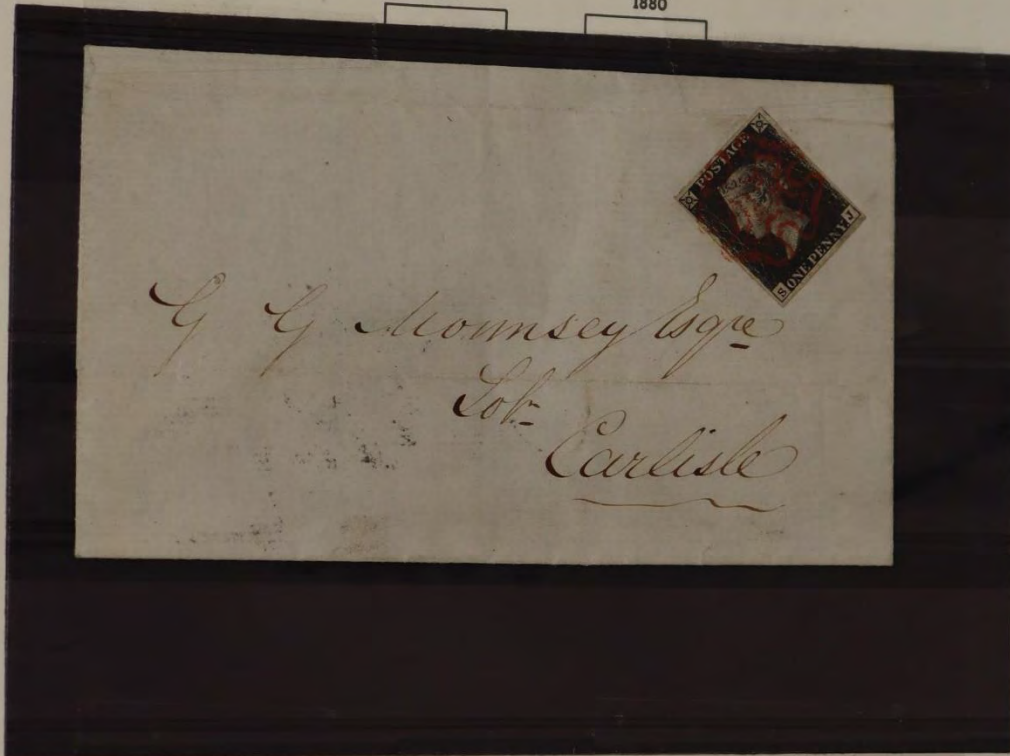 1880
POSTAGE
ONE PENNY
S J
G G Mounsey Esqre
Solr
Carlisle